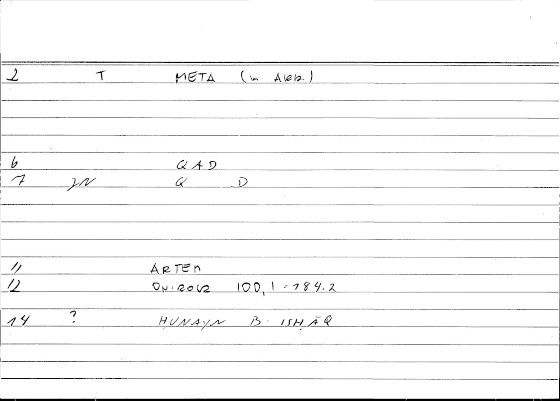 2 T META (in Arab.)
6 QAD
7 JN Q D
11 ARTEM
12 ONIROCR 100,1-184.2
14 ? ḤUNAYN B. ISḤĀQ